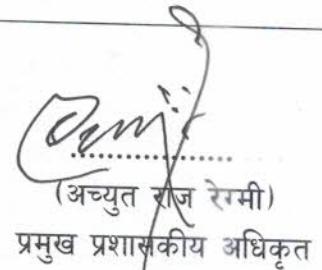 (अच्युत राज रेग्मी)
प्रमुख प्रशासकीय अधिकृत